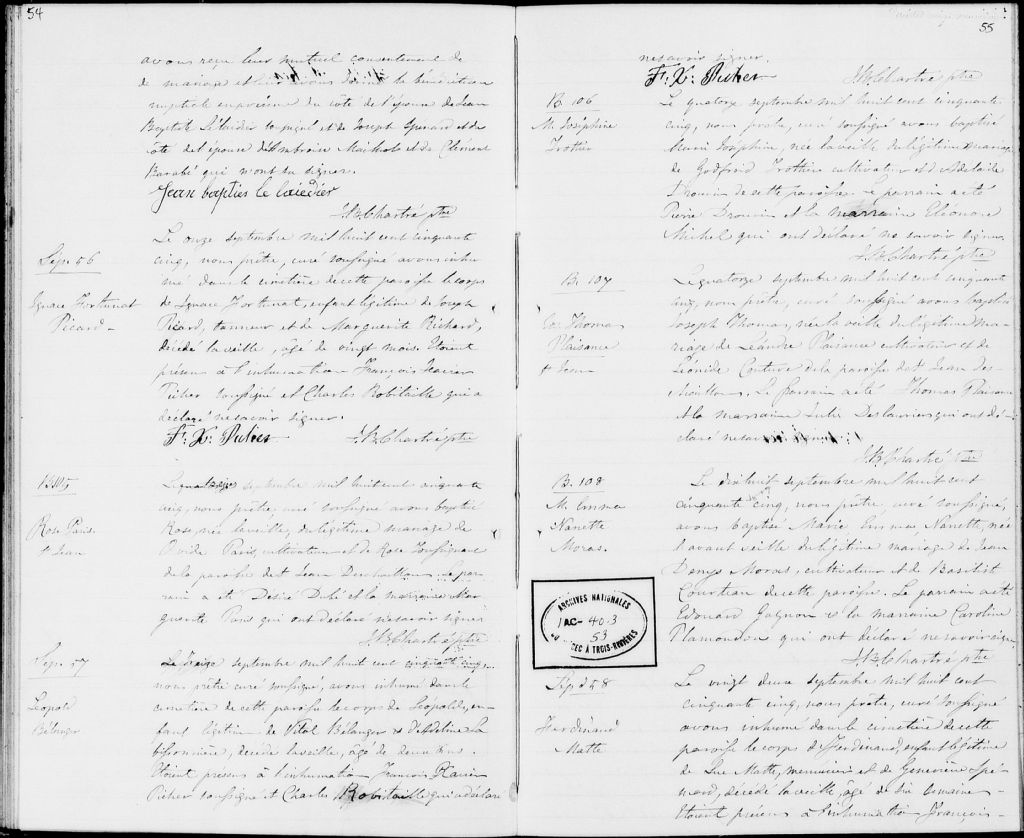 54
avons reçu leur mutuel consentement de
de mariage et leur avons donné la bénédiction
nuptiale en présence du côté de l'époux de Jean
Baptiste Létendier soussigné et de Joseph Spénard et du
côté de l'épouse d'Ambroise Mailhot et de Clément
Barabé qui n'ont su signer.
Jean baptis le
J.B. Chartré ptre
Sep. 56
Ignace Fortunat
Picard -
Le onze septembre mil huit cent cinquante
cinq, nous prêtre, curé soussigné avons inhu
mé dans le cimetière de cette paroisse le corps
de Ignace Fortunat, enfant légitime de Joseph
Picard, tanneur et de Marguerite Richard,
décédé la veille, âgé de vingt mois. Etoient
présens à l'inhumation François Xavier
Picher soussigné et Charles Robitaille qui a
déclaré ne savoir signer.
F. X. Picher J.B. Chartré ptre
B. 105
Rose Paris
St Jean
Le quatorze septembre mil huit cent cinquante
cinq, nous prêtre, curé soussigné avons baptisé
Rose, née la veille, du légitime mariage de
Ovide Paris, cultivateur et de Rose
de la paroisse de St Jean Deschaillons. Le par-
rain a été Désiré Dubé et la marraine Mar
guerite Paris qui ont déclaré ne savoir signer
J.B. Chartré ptre
Sep. 57
Léopold
Bélanger
Le treize septembre mil huit cent cinquante cinq,
nous prêtre curé soussigné, avons inhumé dans le
cimetière de cette paroisse le corps de Léopold, en-
fant légitime de Vital Bélanger & de
décédé la veille, âgé de deux
Etoient présens à l'inhumation François Xavier
Picher soussigné et Charles Robitaille qui a déclaré
55
ne savoir signer.
F. X. Picher J.B. Chartré ptre
B. 106
M. Joséphine
Trottier
Le quatorze septembre mil huit cent cinquante
cinq, nous prêtre, curé soussigné avons baptisé
Marie Joséphine, née la veille du légitime mariage
de Godfroid Trottier cultivateur et d'Adelaïde
Drouin de cette paroisse. Le parrain a été
Pierre Drouin et la marraine Eléonore
Michel qui ont déclaré ne savoir signer.
J.B. Chartré ptre
B. 107
Jos. Thomas
Plaisance
St Jean
Le quatorze septembre mil huit cent cinquante
cinq, nous prêtre, curé soussigné avons baptisé
Joseph Thomas, né la veille du légitime ma-
riage de Léandre Plaisance cultivateur et de
Léonide Couture de la paroisse de St Jean Des-
chaillons. Le parrain a été Thomas Plaisance
et la marraine Julie Deslauriers qui ont dé-
claré ne savoir
J.B. Chartré ptre
B. 108
M. Emma
Nanette
Moras.
Le dix huit septembre mil huit cent
cinquante cinq, nous prêtre, curé soussigné,
avons baptisé Marie Emma Nanette, née
l'avant veille du légitime mariage de Jean
Denys Moras, cultivateur et de Basilist
Courteau de cette paroisse. Le parrain a été
Edouard Gagnon & la marraine Caroline
Plamondon qui ont déclaré ne savoir signer
J.B. Chartré ptre
ARCHIVES NATIONALES
AC- 40-3
53
DU QUÉBEC À TROIS-RIVIÈRES
Sép. 58
Ferdinand
Matte
Le vingt deux septembre mil huit cent
cinquante cinq, nous prêtre, curé soussigné
avons inhumé dans le cimetière de cette
paroisse le corps de Ferdinand, enfant légitime
de Luc Matte, menuisier et de Geneviève Spé-
nard, décédé la veille, âgé de six semaines -
Etoient présens à l'inhumation François -